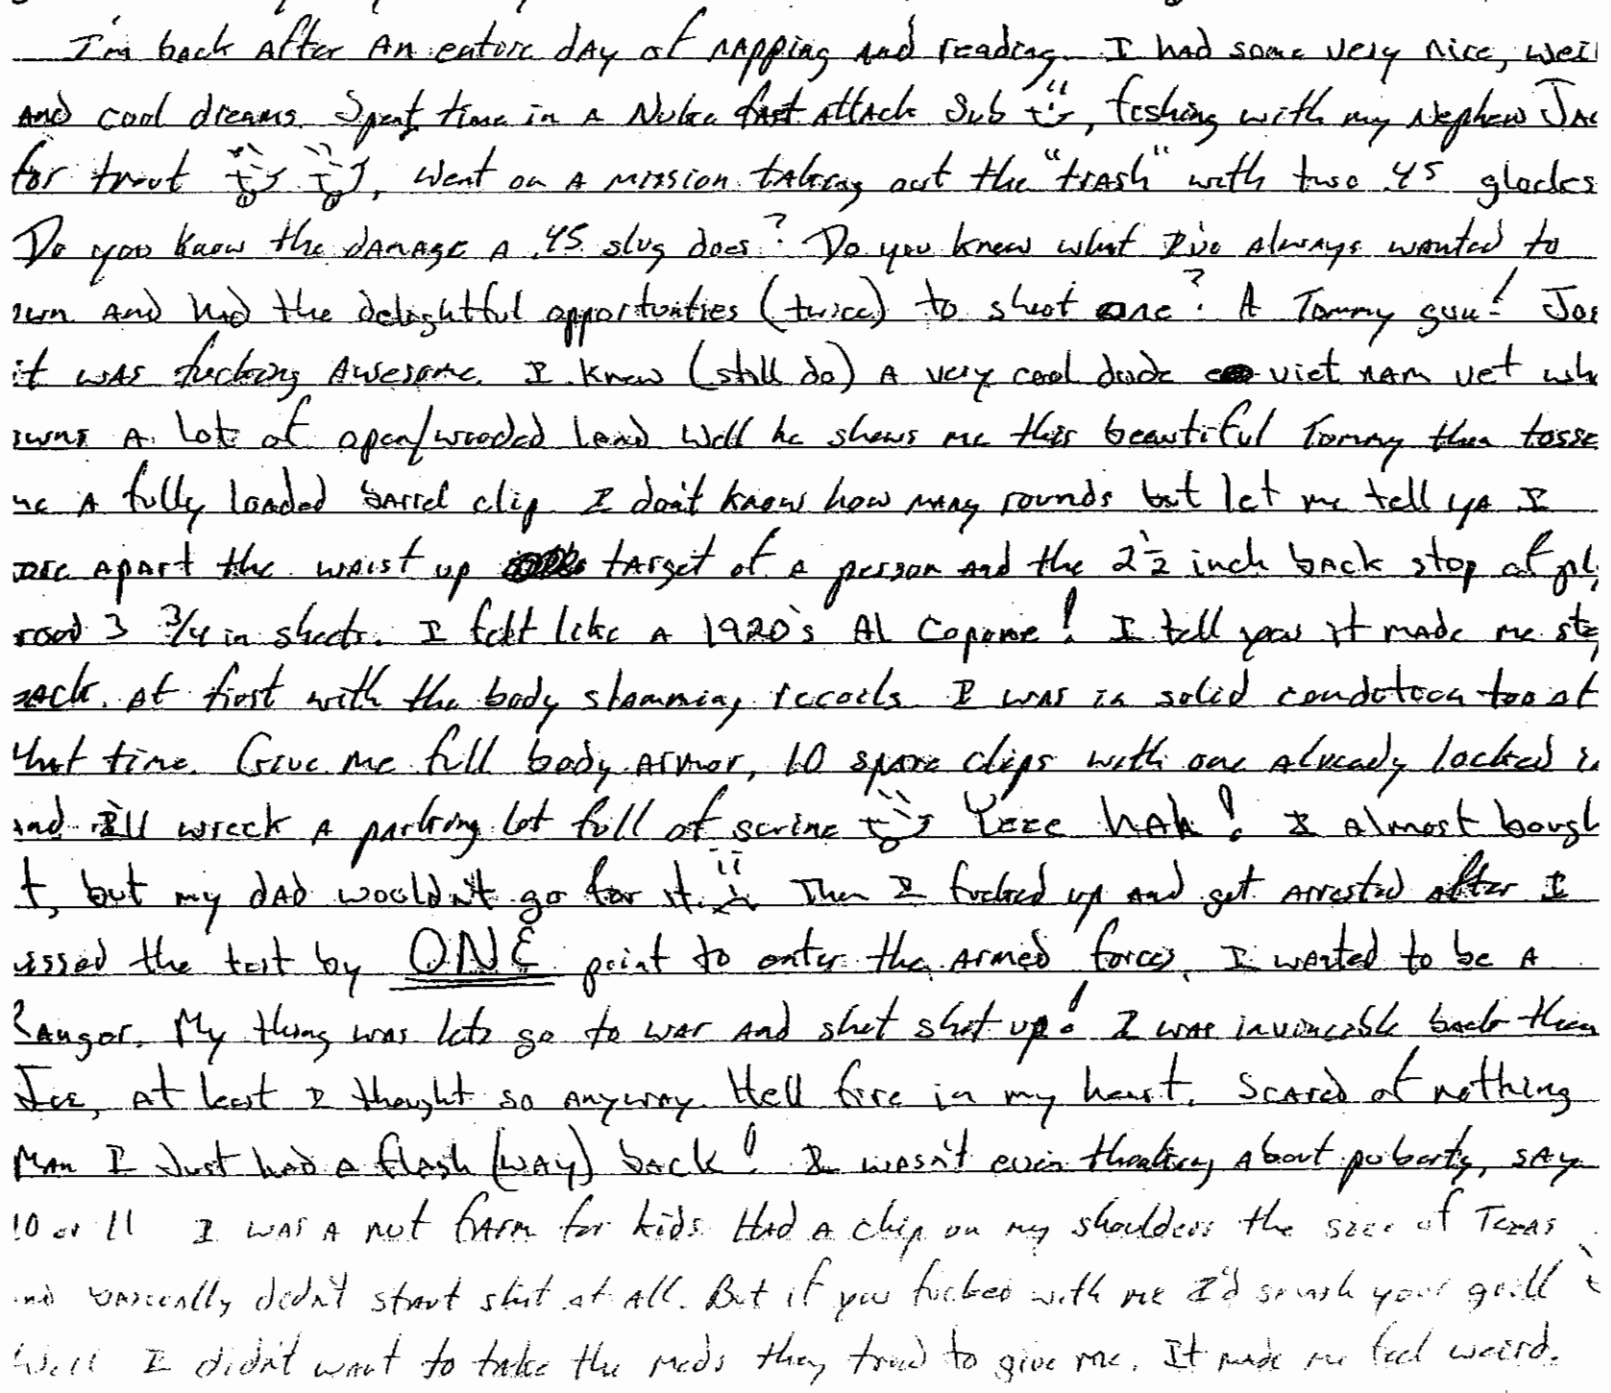 I'm back after an entire day of napping and reading. I had some very nice, wei
and cool dreams. Spent time in a Nuke fast attack sub, fishing with my Nephew Jac
for trout, went on a mission taking out the "trash" with two .45 glocks
Do you know the damage a .45 slug does? Do you know what I've always wanted to
own and had the delightful opportunities (twice) to shoot one? A Tommy gun! Joe
it was fucking awesome. I know (still do) a very cool dude viet nam vet wh
owns a lot of open/wooded land Well he shows me this beautiful Tommy then tosse
me a fully loaded barrel clip I don't know how many rounds but let me tell ya I
tore apart the waist up target of a person and the 2 1/2 inch back stop of pl
wood 3 3/4 in sheets. I felt like a 1920's Al Capone! I tell you it made me ste
back. at first with the body slamming recoils I was in solid condition too at
that time. Give me full body armor, 10 spare clips with one already locked in
and I'll wreck a parking lot full of swine Yeee hah! I almost bough
t, but my dad wouldn't go for it. Then I fucked up and got arrested after I
issed the test by ONE point to enter the armed forces, I wanted to be a
Ranger. My thing was lets go to war and shot shit up! I was invincible back then
Joe, at least I thought so anyway. Hell fire in my heart. Scared of nothing
Man I just had a flash (way) back! I wasn't even thinking about puberty, say
10 or 11 I was a nut farm for kids Had a chip on my shoulders the size of Texas
and basically didn't start shit at all. But if you fucked with me I'd smash your grill
Well I didn't want to take the meds they tried to give me. It made me feel weird.